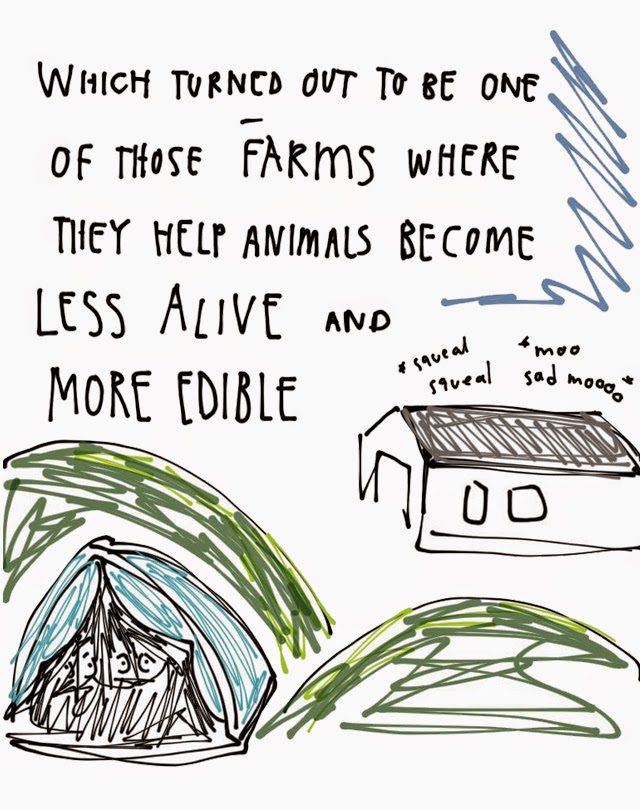 WHICH TURNED OUT TO BE ONE
OF THOSE FARMS WHERE
THEY HELP ANIMALS BECOME
LESS ALIVE AND
MORE EDIBLE
*squeal
squeal
*moo
sad moooo*